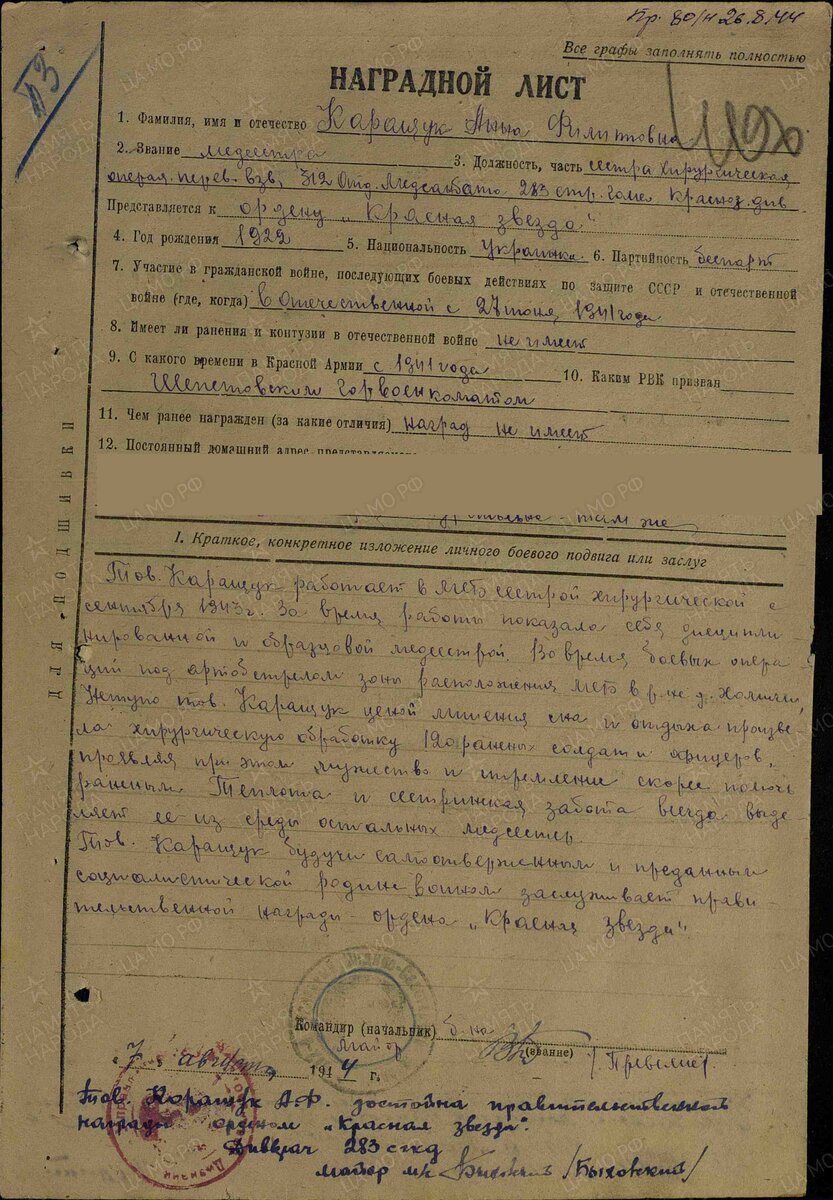 Пр. 80/н 26.8.44
Все графы заполнять полностью
НАГРАДНОЙ ЛИСТ
1. Фамилия, имя и отчество Каращук Анна Филиповна
2. Звание медсестра 3. Должность, часть сестра хирургическая
операц. перев. взв, 312 Отд. Медсанбата 283 стр. Гоме Красноз. див.
Представляется к ордену „Красная звезда"
4. Год рождения 1922 5. Национальность украинка 6. Партийность беспарт
7. Участие в гражданской войне, последующих боевых действиях по защите СССР и отечественной
войне (где, когда) в Отечественной с 27 июня, 1941 года
8. Имеет ли ранения и контузии в отечественной войне не имеет
9. С какого времени в Красной Армии с 1941 года 10. Каким РВК призван
Шепетовским Горвоенкоматом
11. Чем ранее награжден (за какие отличия) наград не имеет
12. Постоянный домашний адрес
там же
ДЛЯ ПОДШИВКИ
I. Краткое, конкретное изложение личного боевого подвига или заслуг
Тов. Каращук работает в Медб сестрой хирургической с
сентября 1943 г. За время работы показала себя дисципли
нированной и образцовой медсестрой. Во время боевых опера
ций под артобстрелом зоны расположения Медб в р-не д.
тов. Каращук ценой лишения сна и отдыха произве
ла хирургическую обработку 120 раненых солдат и офицеров,
проявляя при этом мужество и стремление скорее помочь
раненым. Теплота и сестринская забота всегда выде
ляет ее из среды остальных медсестер.
Тов. Каращук будучи самоотверженным и преданным
социалистической родине воином заслуживает прави
тельственной награды - ордена „Красная звезда"
Командир (начальник) б-на
Майор (звание)
„7" августа 1944 г.
Тов. Каращук А.Ф. достойна правительственной
награды орденом „Красная звезда".
Дивврач 283 сгкд
майор мс /Быховский/